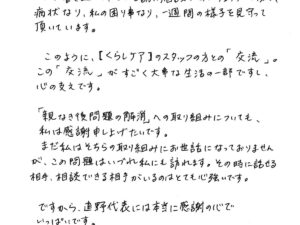 病状なり、私の困り事なり、一週間の様子を見守って
頂いています。
このように、【くらしケア】のスタッフの方との「交流」。
この「交流」が すごく大事な生活の一部ですし、
心の支えです。
「親なき後問題の解消」への取り組みについても、
私は感謝申し上げたいです。
まだ私はそちらの取り組みにお世話になっておりません
が、この問題はいづれ私にも訪れます。その時に話せる
相手、相談できる相手がいるのはとても心強いです。
ですから、迫野代表には本当に感謝の心で
いっぱいです。